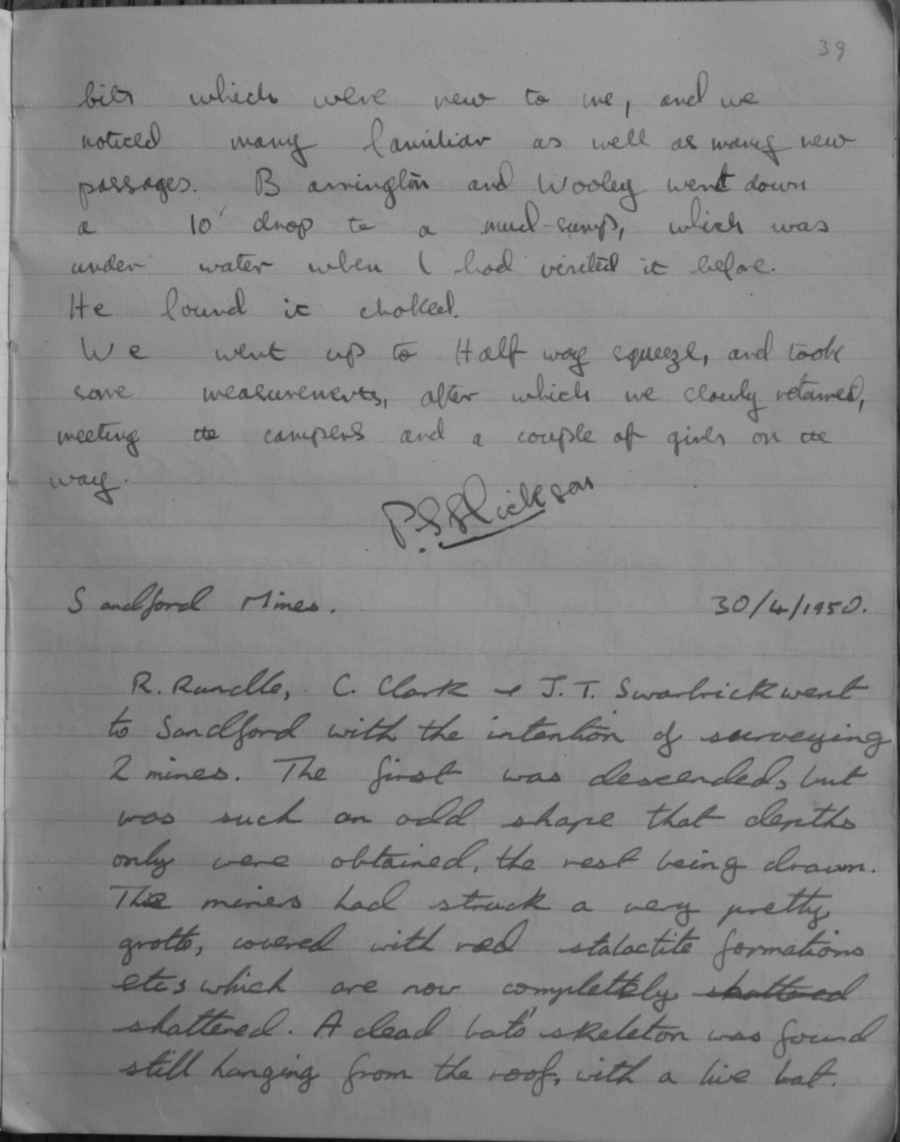 39
bits which were new to me, and we
noticed many familiar as well as many new
passages. Barrington and Wooley went down
a 10' drop to a mud-sump, which was
under water when I had visited it before.
He found it choked.
We went up to Half way squeeze, and took
some measurements, after which we slowly returned,
meeting the campers and a couple of girls on the
way.
P.S. Hickson
Sandford Mines. 30/4/1950.
R. Rundle, C. Clark & J.T. Swarbrick went
to Sandford with the intention of surveying
2 mines. The first was descended, but
was such an odd shape that depths
only were obtained, the rest being drawn.
The miners had struck a very pretty
grotto, covered with red stalactite formations
etc, which are now completely shattered
shattered. A dead bat's skeleton was found
still hanging from the roof, with a live bat.